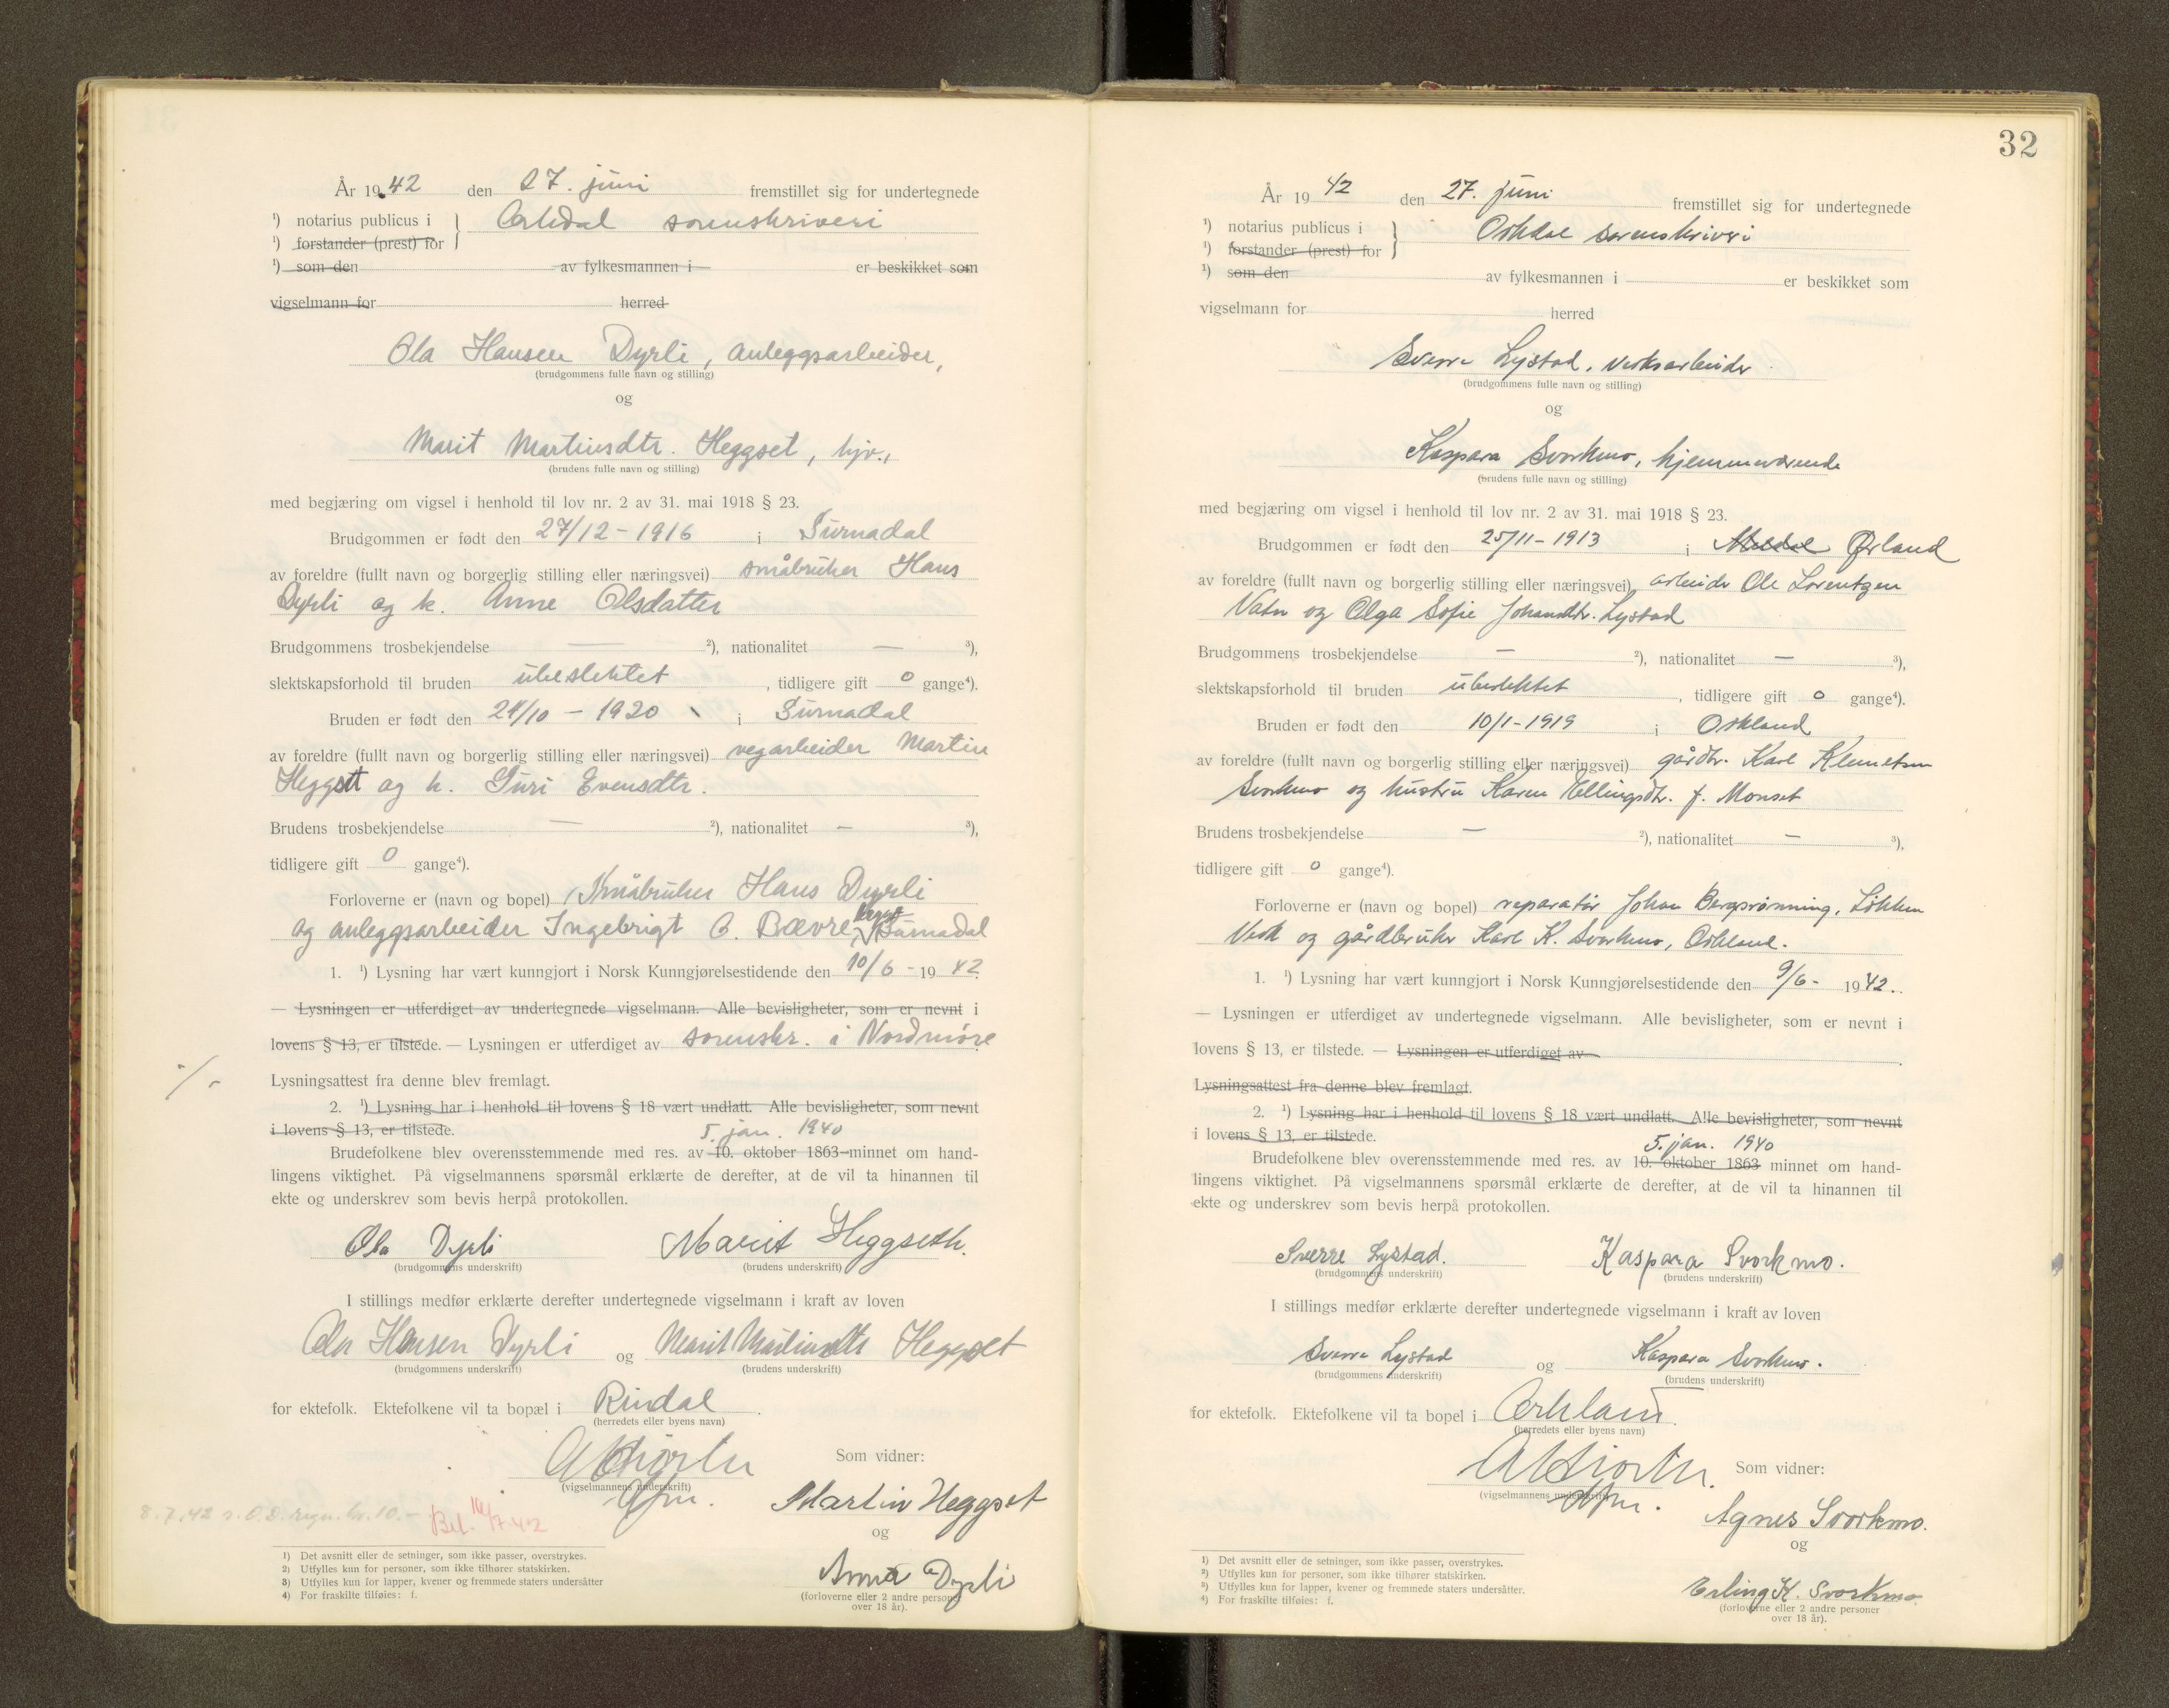 År 1942 den 27. juni fremstillet sig for undertegnede
¹) notarius publicus i } Orkdal sorenskriveri
¹) forstander (prest) for
¹) som den av fylkesmannen i er beskikket som
vigselmann for herred
Ola Hansen Dyrli, anleggsarbeider,
(brudgommens fulle navn og stilling)
og
Marit Martinsdtr. Heggset, hjv.,
(brudens fulle navn og stilling)
med begjæring om vigsel i henhold til lov nr. 2 av 31. mai 1918 § 23.
Brudgommen er født den 27/12 - 1916 i Surnadal
av foreldre (fullt navn og borgerlig stilling eller næringsvei) småbruker Hans
Dyrli og h. Anne Olsdatter
Brudgommens trosbekjendelse — ²), nationalitet — ³),
slektskapsforhold til bruden ubeslektet, tidligere gift 0 gange⁴).
Bruden er født den 24/10 - 1920 i Surnadal
av foreldre (fullt navn og borgerlig stilling eller næringsvei) vegarbeider Martin
Heggset og h. Guri Evensdtr.
Brudens trosbekjendelse — ²), nationalitet — ³),
tidligere gift 0 gange⁴).
Forloverne er (navn og bopel) Småbruker Hans Dyrli
og anleggsarbeider Ingebrigt O. Bævre, Surnadal
1. ¹) Lysning har vært kunngjort i Norsk Kunngjørelsestidende den 10/6 - 1942
— Lysningen er utferdiget av undertegnede vigselmann. Alle bevisligheter, som er nevnt i
lovens § 13, er tilstede. — Lysningen er utferdiget av sorenskr. i Nordmøre
Lysningsattest fra denne blev fremlagt.
2. ¹) Lysning har i henhold til lovens § 18 vært undlatt. Alle bevisligheter, som nevnt
i lovens § 13, er tilstede.
5. jan. 1940
Brudefolkene blev overensstemmende med res. av 10. oktober 1863 minnet om hand-
lingens viktighet. På vigselmannens spørsmål erklærte de derefter, at de vil ta hinannen til
ekte og underskrev som bevis herpå protokollen.
Ola Dyrli Marit Heggseth.
(brudgommens underskrift) (brudens underskrift)
I stillings medfør erklærte derefter undertegnede vigselmann i kraft av loven
Ola Hansen Dyrli og Marit Martinsdtr Heggset
(brudgommens underskrift) (brudens underskrift)
for ektefolk. Ektefolkene vil ta bopæl i Rindal.
(herredets eller byens navn)
Som vidner:
(vigselmannens underskrift)
Martin Heggset
og
Anna Dyrli
(forloverne eller 2 andre personer
over 18 år).
8.7.42 s.O.D. regn. kr. 10.-
Bet. 14/7-42
¹) Det avsnitt eller de setninger, som ikke passer, overstrykes.
²) Utfylles kun for personer, som ikke tilhører statskirken.
³) Utfylles kun for lapper, kvener og fremmede staters undersåtter
⁴) For fraskilte tilføies: f.
32
År 1942 den 27. juni fremstillet sig for undertegnede
¹) notarius publicus i } Orkdal sorenskriveri
¹) forstander (prest) for
¹) som den av fylkesmannen i er beskikket som
vigselmann for herred
Sverre Lystad, verksarbeider
(brudgommens fulle navn og stilling)
og
Kaspara Svorkmo, hjemmeværende
(brudens fulle navn og stilling)
med begjæring om vigsel i henhold til lov nr. 2 av 31. mai 1918 § 23.
Brudgommen er født den 25/11 - 1913 i Meldal Ørland
av foreldre (fullt navn og borgerlig stilling eller næringsvei) arbeider Ole Lorentzen
Vatn og Olga Sofie Johansdtr. Lystad
Brudgommens trosbekjendelse — ²), nationalitet — ³),
slektskapsforhold til bruden ubeslektet, tidligere gift 0 gange⁴).
Bruden er født den 10/1 - 1919 i Orkland
av foreldre (fullt navn og borgerlig stilling eller næringsvei) gårdbr. Karl Klemetsen
Svorkmo og hustru Karen Ellingsdtr. f. Monset
Brudens trosbekjendelse — ²), nationalitet — ³),
tidligere gift 0 gange⁴).
Forloverne er (navn og bopel) reparatør Johan Bergsrønning, Løkken
Verk og gårdbruker Karl K. Svorkmo, Orkland.
1. ¹) Lysning har vært kunngjort i Norsk Kunngjørelsestidende den 9/6 - 1942.
— Lysningen er utferdiget av undertegnede vigselmann. Alle bevisligheter, som er nevnt i
lovens § 13, er tilstede. — Lysningen er utferdiget av
Lysningsattest fra denne blev fremlagt.
2. ¹) Lysning har i henhold til lovens § 18 vært undlatt. Alle bevisligheter, som nevnt
i lovens § 13, er tilstede.
5. jan. 1940
Brudefolkene blev overensstemmende med res. av 10. oktober 1863 minnet om hand-
lingens viktighet. På vigselmannens spørsmål erklærte de derefter, at de vil ta hinannen til
ekte og underskrev som bevis herpå protokollen.
Sverre Lystad. Kaspara Svorkmo.
(brudgommens underskrift) (brudens underskrift)
I stillings medfør erklærte derefter undertegnede vigselmann i kraft av loven
Sverre Lystad og Kaspara Svorkmo.
(brudgommens underskrift) (brudens underskrift)
for ektefolk. Ektefolkene vil ta bopel i Orkland.
(herredets eller byens navn)
Som vidner:
(vigselmannens underskrift)
Agnes Svorkmo.
og
Erling K. Svorkmo.
(forloverne eller 2 andre personer
over 18 år).
¹) Det avsnitt eller de setninger, som ikke passer, overstrykes.
²) Utfylles kun for personer, som ikke tilhører statskirken.
³) Utfylles kun for lapper, kvener og fremmede staters undersåtter.
⁴) For fraskilte tilføies: f.